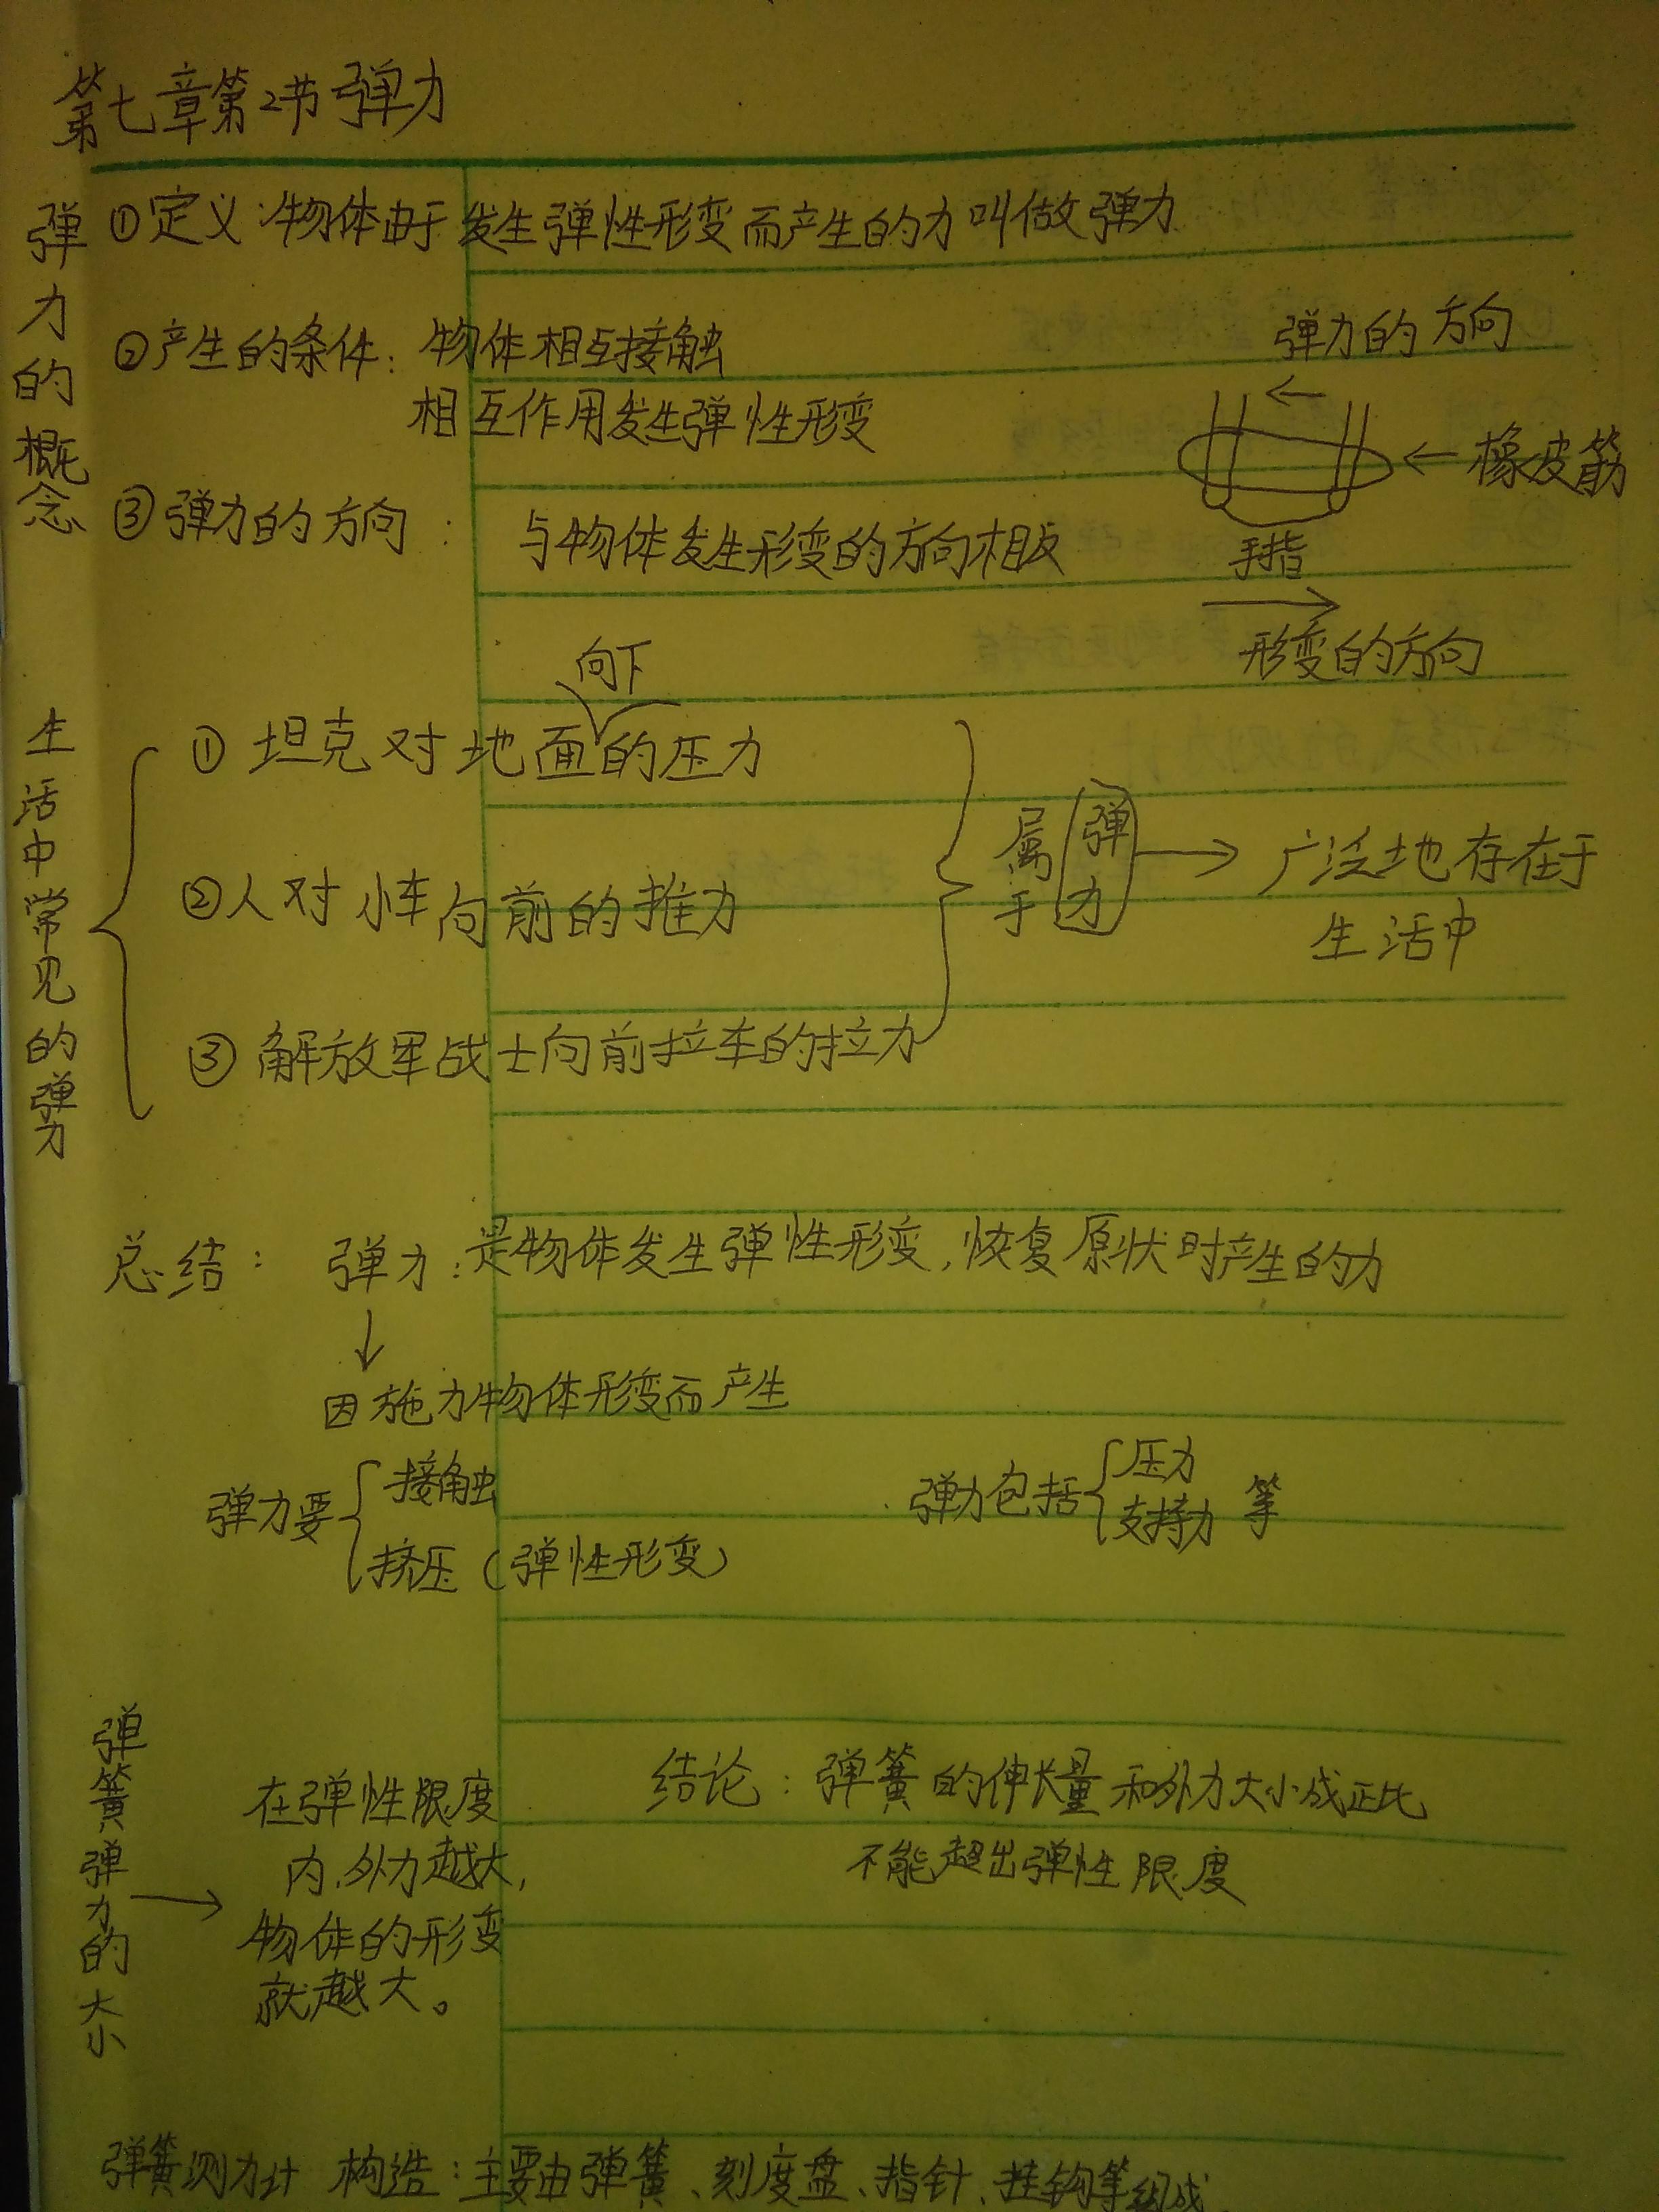 第七章第2节弹力
弹力的概念
①定义:物体由于发生弹性形变而产生的力叫做弹力
②产生的条件:物体相互接触
相互作用发生弹性形变
弹力的方向
←
←橡皮筋
手指
→
形变的方向
③弹力的方向:与物体发生形变的方向相反
生活中常见的弹力
向下
①坦克对地面的压力
②人对小车向前的推力
③解放军战士向前拉车的拉力
属于弹力→广泛地存在于
生活中
总结:弹力:是物体发生弹性形变,恢复原状时产生的力
↓
因施力物体形变而产生
弹力要{接触
挤压(弹性形变)
弹力包括{压力
支持力 等
弹簧弹力的大小→
在弹性限度
内,外力越大,
物体的形变
就越大。
结论:弹簧的伸长量和外力大小成正比
不能超出弹性限度
弹簧测力计 构造:主要由弹簧、刻度盘、指针、挂钩等组成.